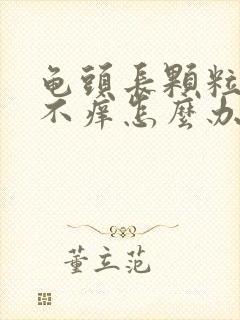 龟頭長顆粒
不痒怎麼办
董立范